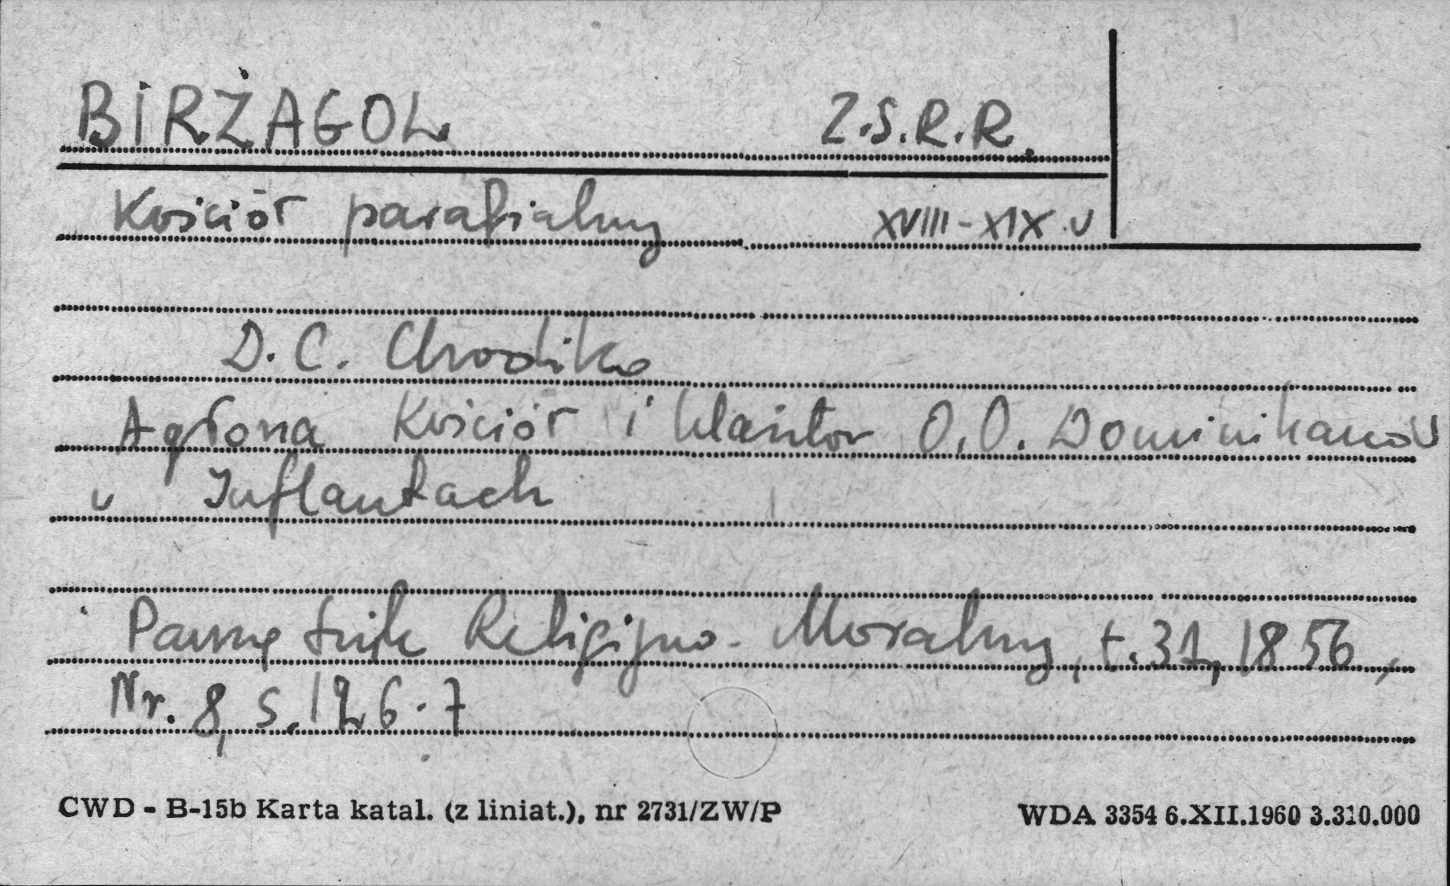 BIRŻAGOL Z.S.R.R.
Kościół parafialny XVIII-XIX w
D. C. Chodźko
Agłona Kościół i klasztor O.O. Dominikanów
w Inflantach
Pamiętnik Religijno-Moralny, t. 31, 1856,
Nr. 8, s. 126-7
CWD - B-15b Karta katal. (z liniat.), nr 2731/ZW/P WDA 3354 6.XII.1960 3.310.000